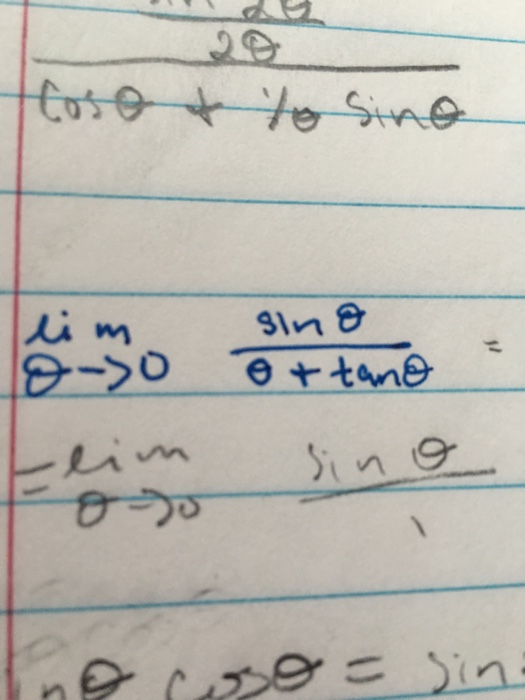 sin 2θ
2θ
cosθ + 1/θ sinθ
lim θ→0 sin θ / θ + tanθ =
= lim θ→0 sin θ / 1
nθ cosθ = sin